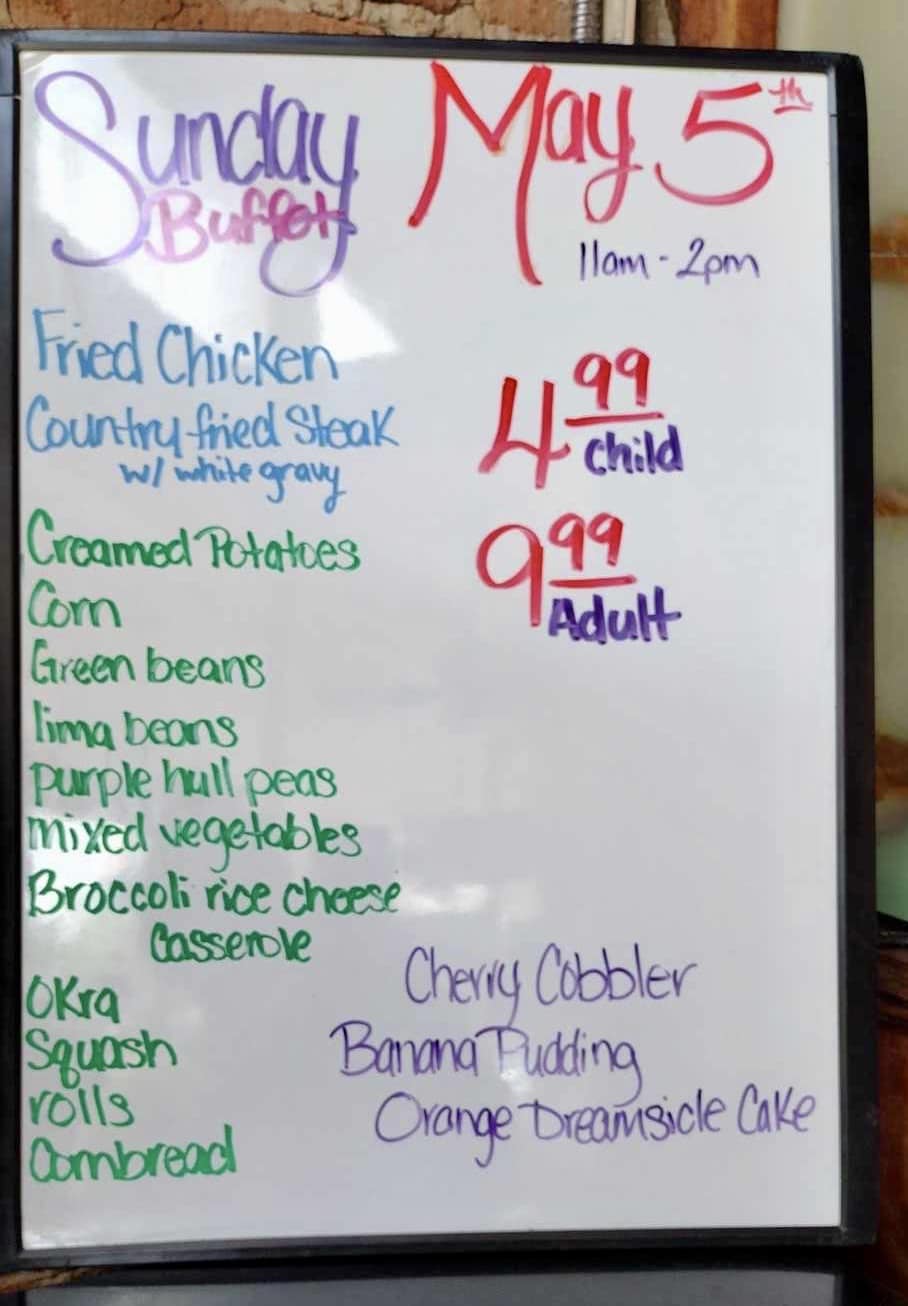 Sunday
Buffet
May 5th
11am - 2pm
Fried Chicken
Country fried Steak
w/ white gravy
4 99
Child
9 99
Adult
Creamed Potatoes
Corn
Green beans
lima beans
purple hull peas
mixed vegetables
Broccoli rice cheese
Casserole
Okra
Squash
rolls
Cornbread
Cherry Cobbler
Banana Pudding
Orange Dreamsicle Cake